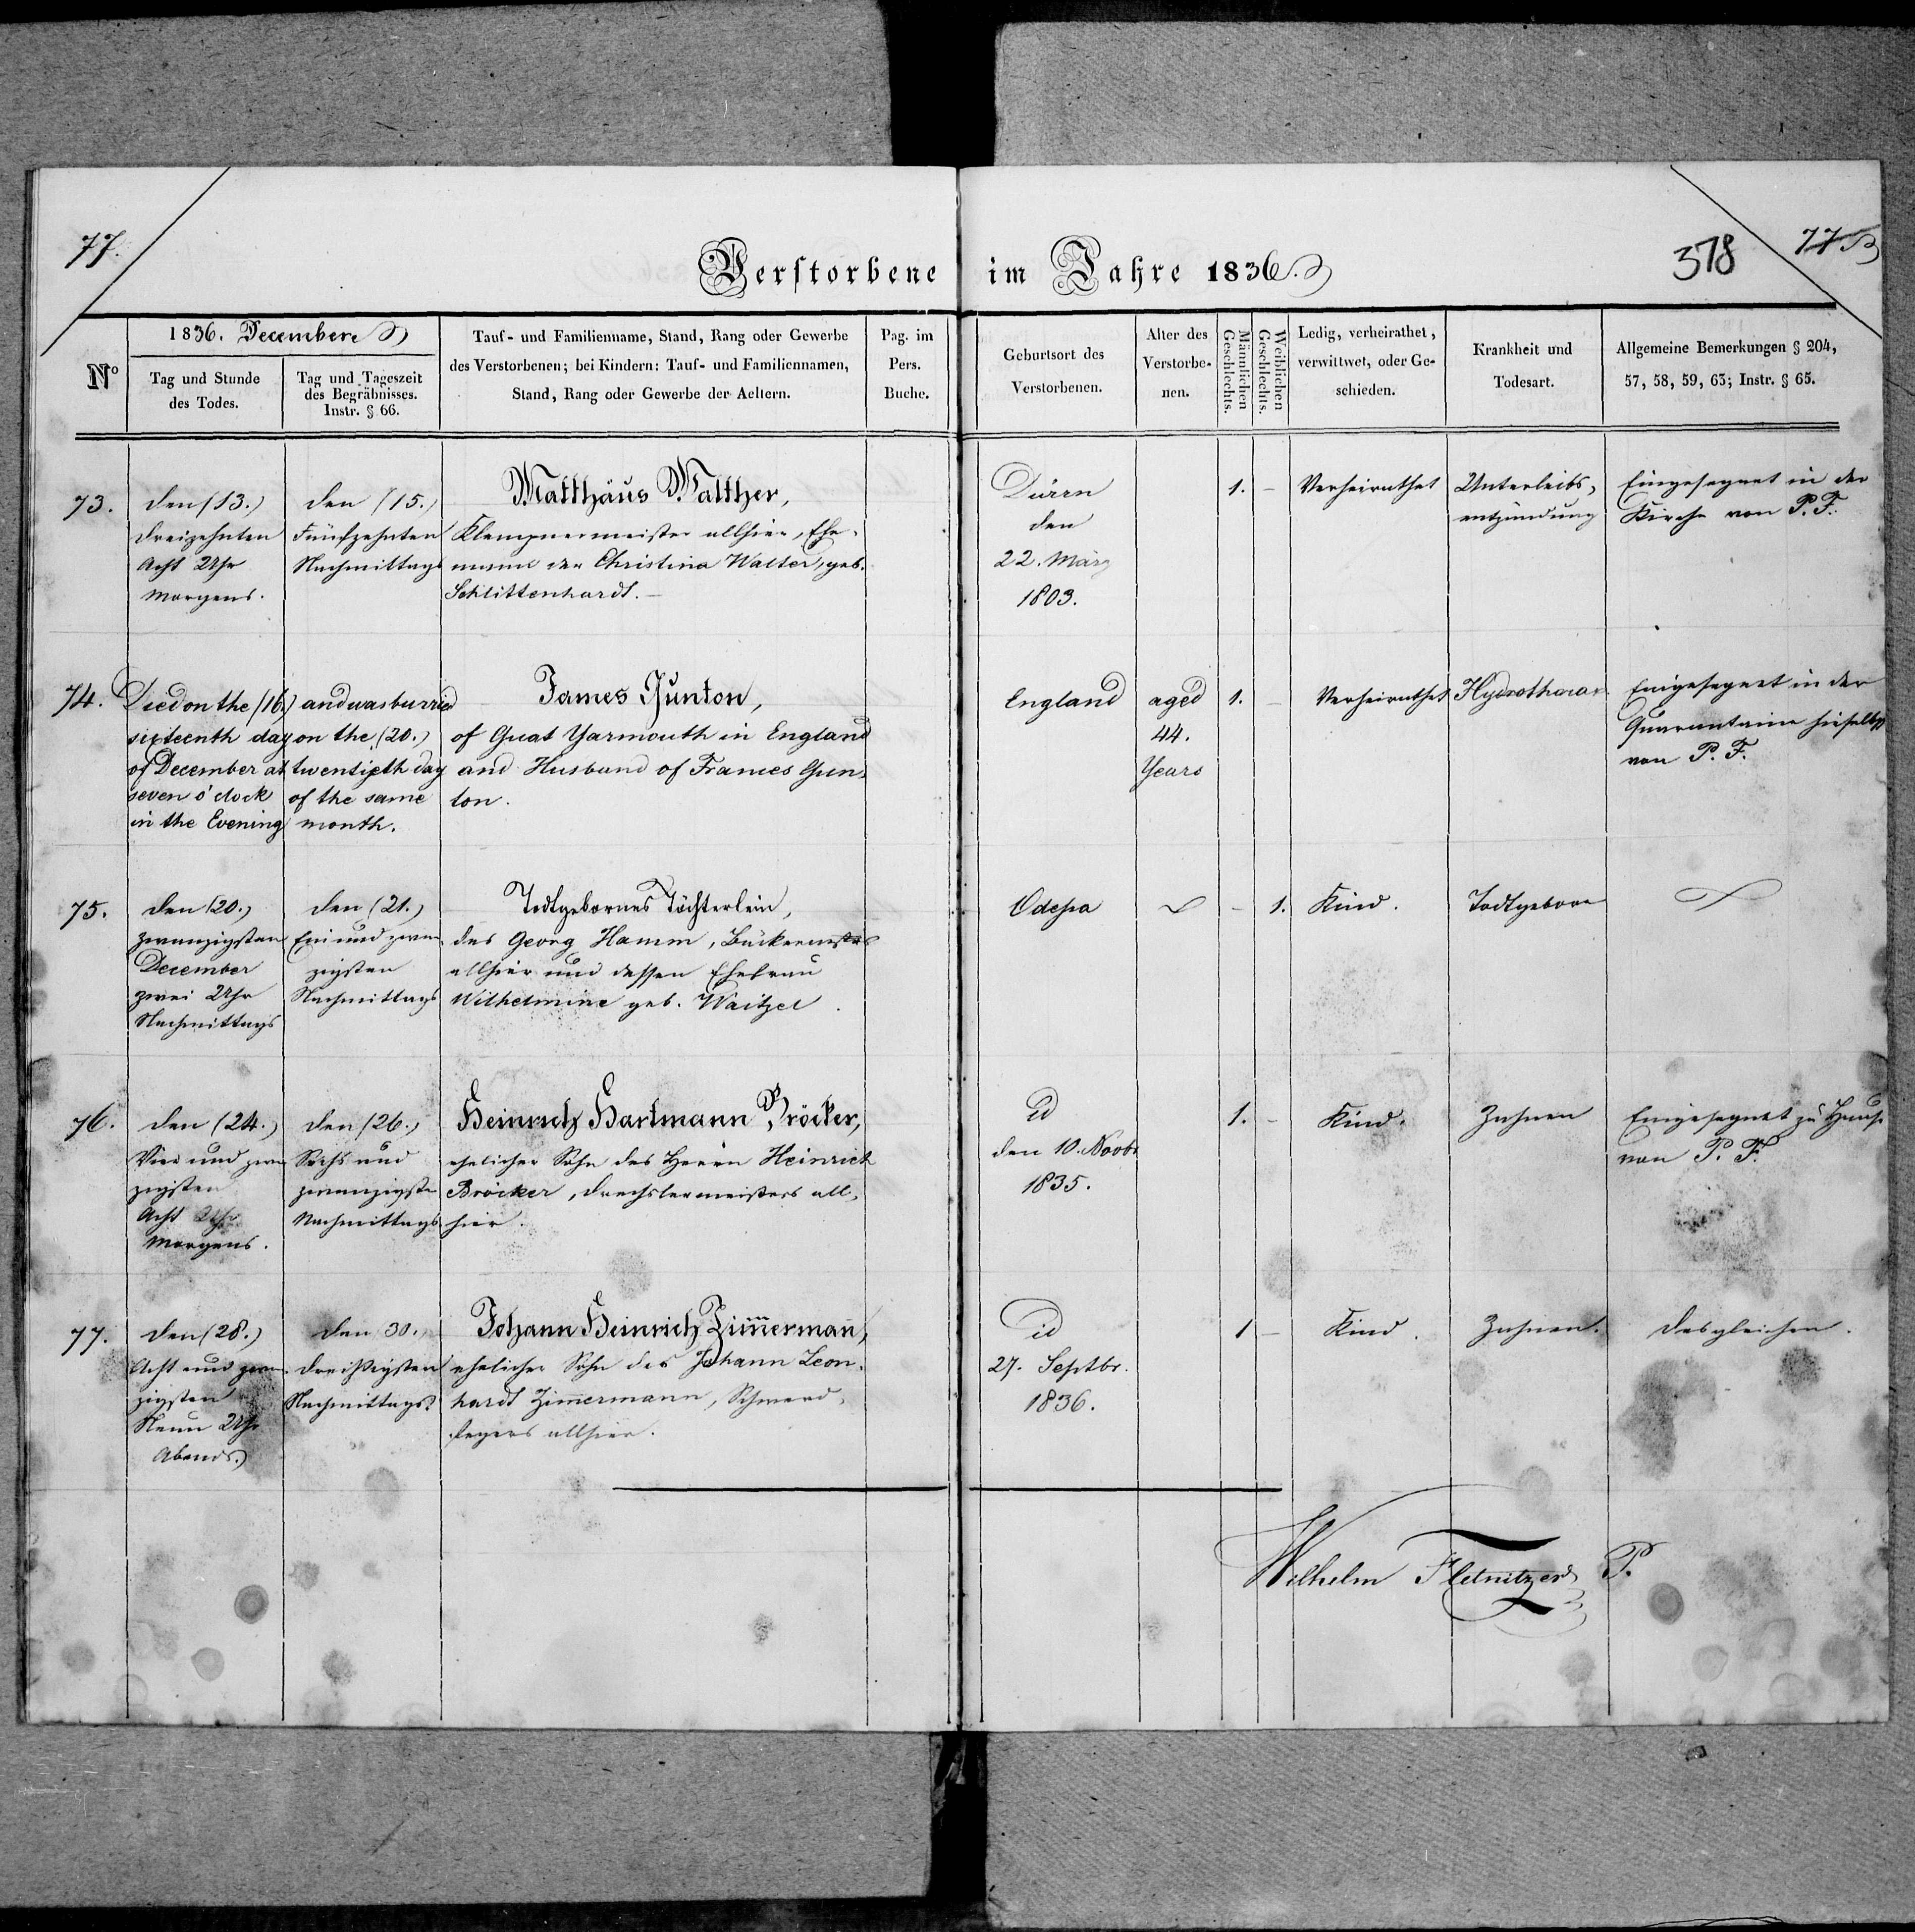 77.
378
77
Verstorbene im Jahre 1836.
No
1836. December
Tag und Stunde
des Todes.
Tag und Tageszeit
des Begräbnisses.
Instr. § 66.
Tauf- und Familienname, Stand, Rang oder Gewerbe
des Verstorbenen; bei Kindern: Tauf- und Familiennamen,
Stand, Rang oder Gewerbe der Aeltern.
Pag. im
Pers.
Buche.
Geburtsort des
Verstorbenen.
Alter des
Verstorbe-
nen.
Männlichen
Geschlechts.
Weiblichen
Geschlechts.
Ledig, verheirathet,
verwittwet, oder Ge-
schieden.
Krankheit und
Todesart.
Allgemeine Bemerkungen § 204,
57, 58, 59, 63; Instr. § 65.
73.
den (13.)
dreizehnten
Acht Uhr
Morgens.
den (15.)
Fünfzehnten
Nachmittags
Matthäus Walther,
Klempnermeister allhier, Ehe-
mann der Christina Walter, geb.
Schlittenhardt.
Dürrn
den
22. März
1803.
1. -
Verheirathet
Unterleibs-
entzündung
Eingesegnet in der
Kirche von P. F.
74.
Died on the (16.)
sixteenth day
of December at
seven o'clock
in the Evening
and was burried
on the (20.)
twentieth day
of the same
month.
James Gunton,
of Great Yarmouth in England
and Husband of Frances Gun-
ton.
England
aged
44.
Years
1. -
Verheirathet
Hydrothorax
Eingesegnet in der
Quarantaine hieselbst
von P. F.
75.
den (20.)
zwanzigsten
December
zwei Uhr
Nachmittags
den (21.)
Ein und zwan-
zigsten
Nachmittags
Todtgebornes Töchterlein,
des Georg Hamm, Bäckermstrs
allhier und dessen Ehefrau
Wilhelmine geb. Waitzel.
Odessa
- 1.
Kind.
Todtgeboren
76.
den (24.)
Vier und zwan-
zigsten
Acht Uhr
Morgens.
den (26.)
Sechs und
zwanzigsten
Nachmittags
Heinrich Hartmann Bröcker,
ehelicher Sohn des Herrn Heinrich
Bröcker, Drechslermeisters all-
hier.
id
den 10. Novbr
1835.
1. -
Kind.
Zahnen
Eingesegnet zu Hause
von P. F.
77.
den (28.)
Acht und zwan-
zigsten
Neun Uhr
Abends.
den (30.)
dreißigsten
Nachmittags.
Johann Heinrich Zimmermann,
ehelicher Sohn des Johann Leon-
hardt Zimmermann, Schwerd-
fegers allhier.
id
27. Septbr.
1836.
1 -
Kind.
Zahnen.
desgleichen.
Wilhelm Fletnitzer P.